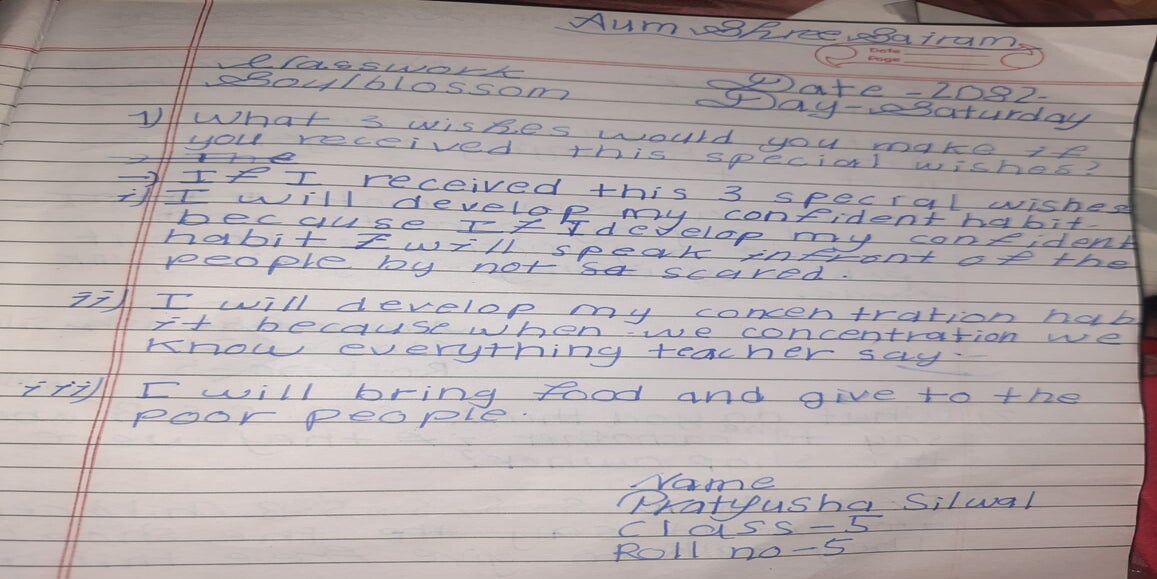 Aum Shree Sairam
Date
Page
Classwork
Soulblossom
Date - 2082-
Day - Saturday
1) What 3 wishes would you make if
you received this special wishes?
→ The
→ If I received this 3 special wishes
i) I will develop my confident habit
because If I develop my confident
habit I will speak infront of the
people by not so scared.
ii) I will develop my concentration hab
it because when we concentration we
know everything teacher say.
iii) I will bring food and give to the
poor people.
Name
Pratyusha Silwal
Class - 5
Roll no - 5